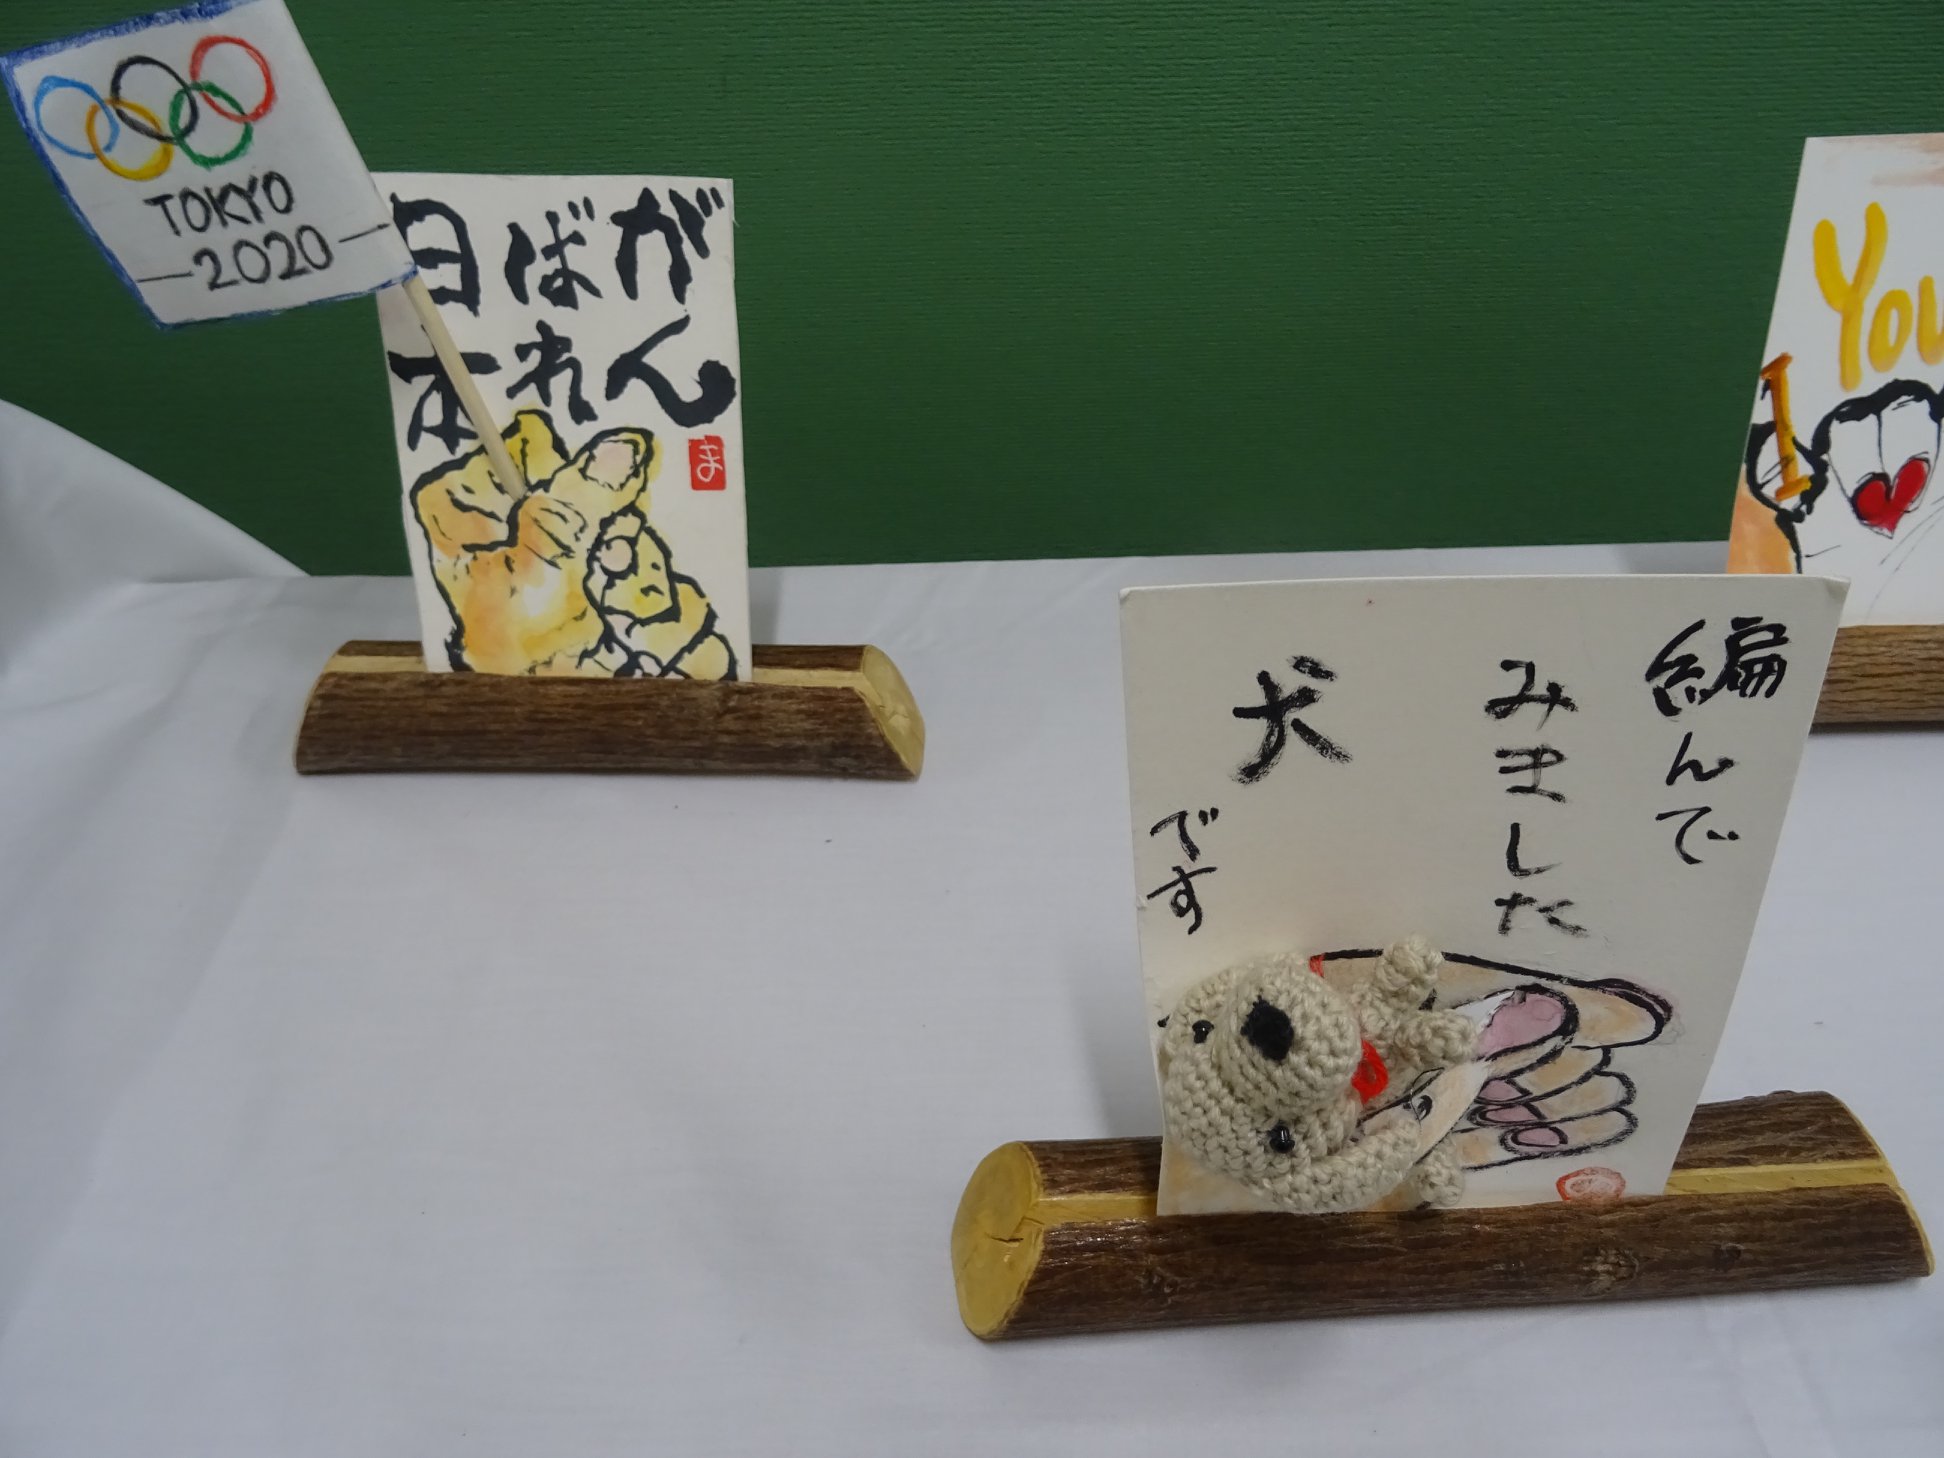 TOKYO
—2020—
がん
ばれ
日本
ま
編んで
みました
犬
です
You
I